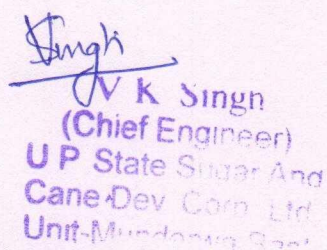 Singh
V K Singh
(Chief Engineer)
U P State Sugar And
Cane Dev Corp Ltd
Unit-Munderwa